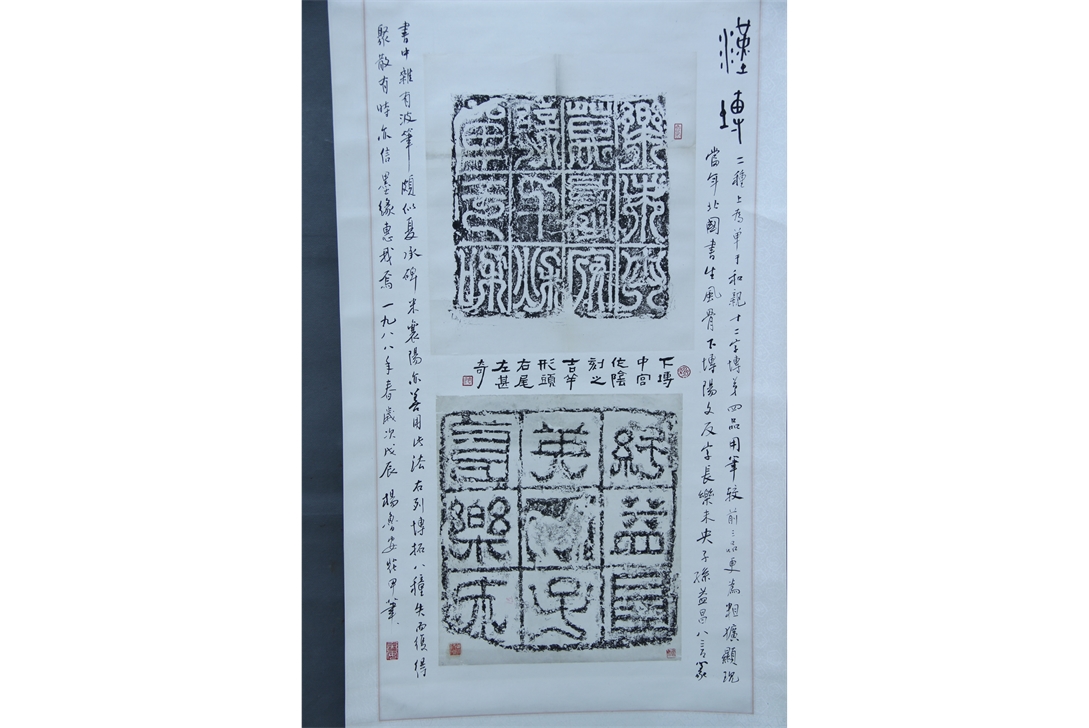 漢塼
二種上為單于和親十二字塼第四品用筆較前三品更為粗獷顯現
當年北國書生風骨下塼陽文反字長樂未央子孫益昌八言篆
書中雜有波筆頗似夏承碑米襄陽亦善用此法右列塼拓八種失而復得
聚散有時亦信墨緣惠我焉一九八八年春歲次戊辰楊魯安牧甲筆
單于和
親千秋
萬歲安
樂未央
下塼
中宮
作陰
刻之
吉羊
形頭
右尾
左甚
奇
長樂未
央子
孫益昌